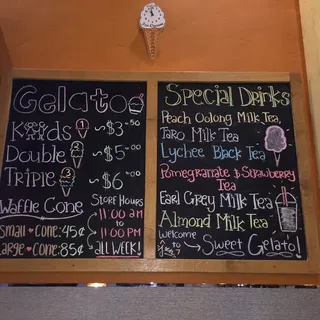 Gelato
Kids 1 ~$3.50
Double 2 ~$5.00
Triple 3 ~$6.00
Waffle Cone
Small ♥ Cone: 45¢
Large ♥ Cone: 85¢
Store Hours
11:00 am
to
11:00 PM
ALL WEEK!
Special Drinks
Peach Oolong Milk Tea
Taro Milk Tea
Lychee Black Tea
Pomegranate & Strawberry
Tea
Earl Grey Milk Tea
Almond Milk Tea
Welcome
to
Sweet Gelato!